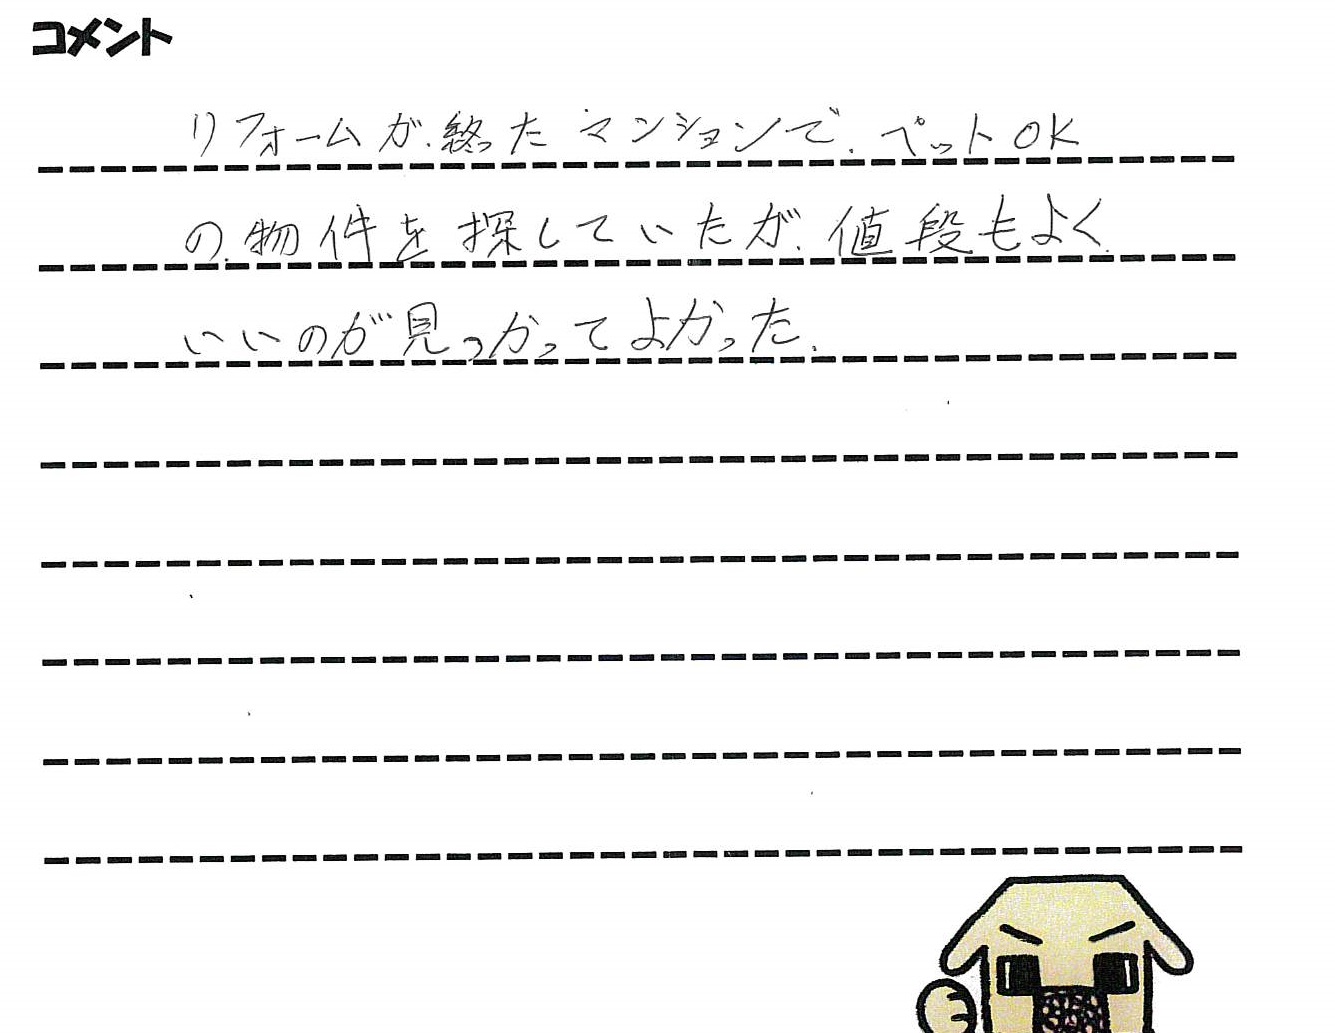 コメント
リフォームが終った マンションで、ペットOK
の物件を探していたが、値段もよく
いいのが見つかってよかった。